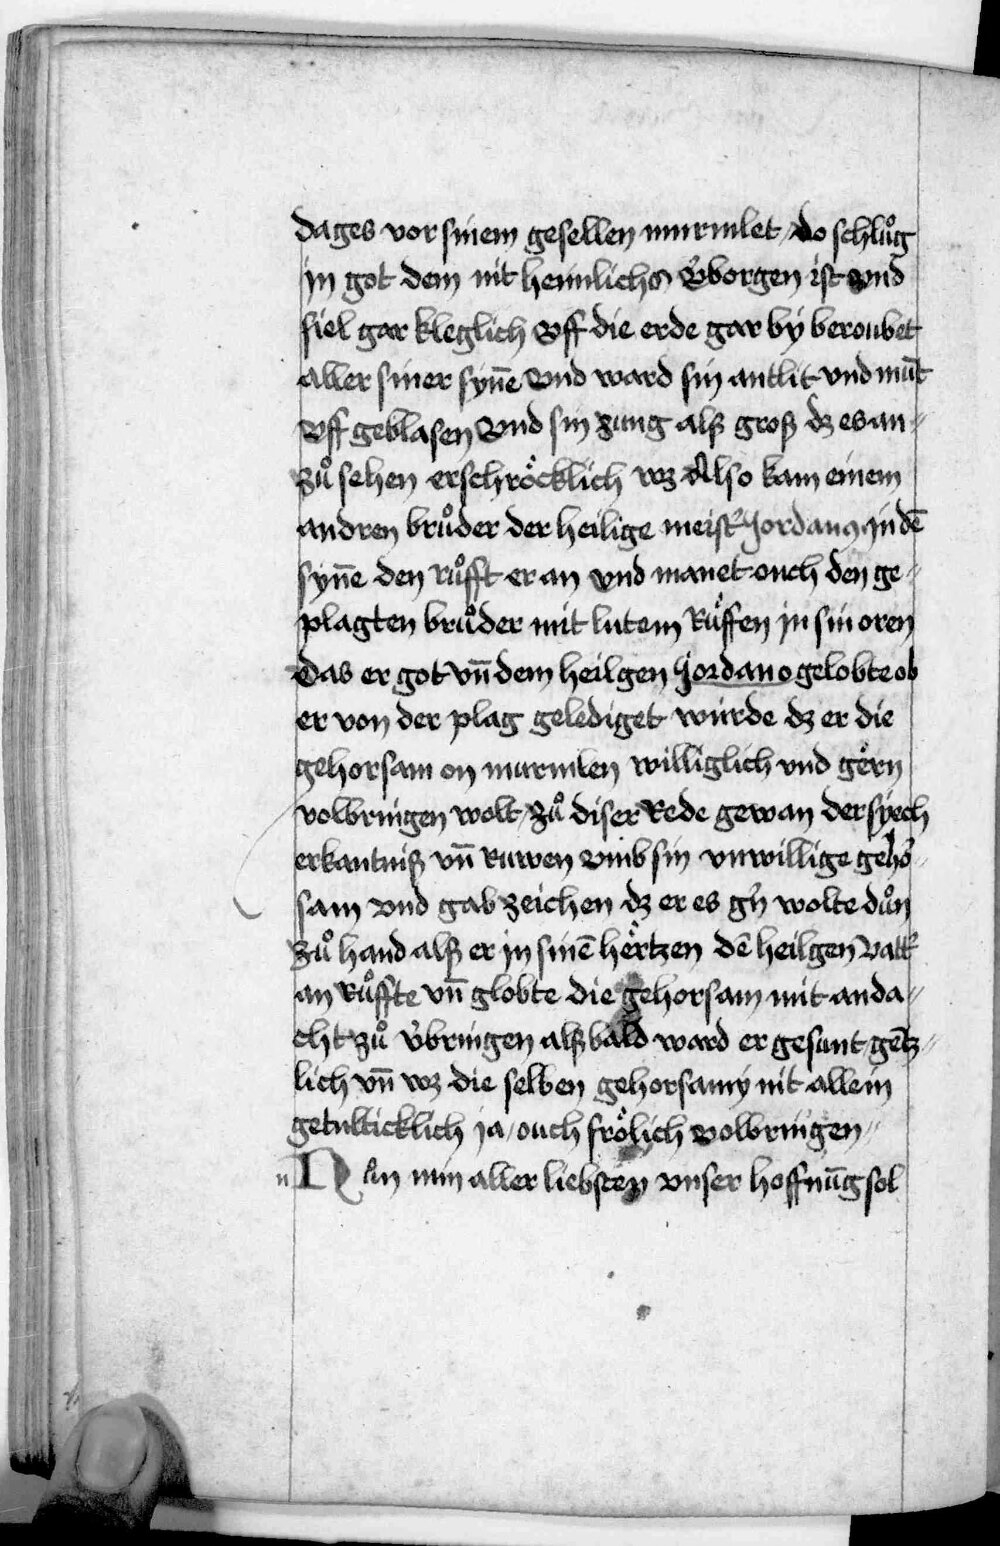 dages vor sinem gesellen murmlet / do schlůg
jn got dem nit heimlichs v̓borgen ist vnd
fiel gar kleglich vff die erde gar by beroubet
aller siner syn̄e vnd ward sin antlit vnd mūt
vff geblasen vnd sin zung alß groß dz es an〃
zů sehen erschröcklich wz Also kam einem
andren brůder der heilige meist̓ Jordanꝯ jn dē
syn̄e den růfft er an vnd manet ouch den ge〃
plagten brůder mit lutem Růffen jn sin oren
Das er got vn̄ dem heilgen Jordano gelobte ob
er von der plag gelediget wúrde dz er die
gehorsam on murmlen williglich vnd gërn
volbringen wolt / zů diser Rede gewan der syech
erkantniß vn̄ Ruwen vmb sin vnwillige geho̓〃
sam vnd gab zeichen dz er es gn̓ wolte důn
zů hand alß er jn sinē hërtzen dē heilgen vatt̓
an Růffte vn̄ globte die gehorsam mit anda〃
cht zů v̓bringen alß bald ward er gesunt gētz〃
lich vn̄ wz die selben gehorsamy nit allein
getulticklich ja / ouch frölich volbringen〃
n NAn nun aller liebsten vnser hoffnūg sol